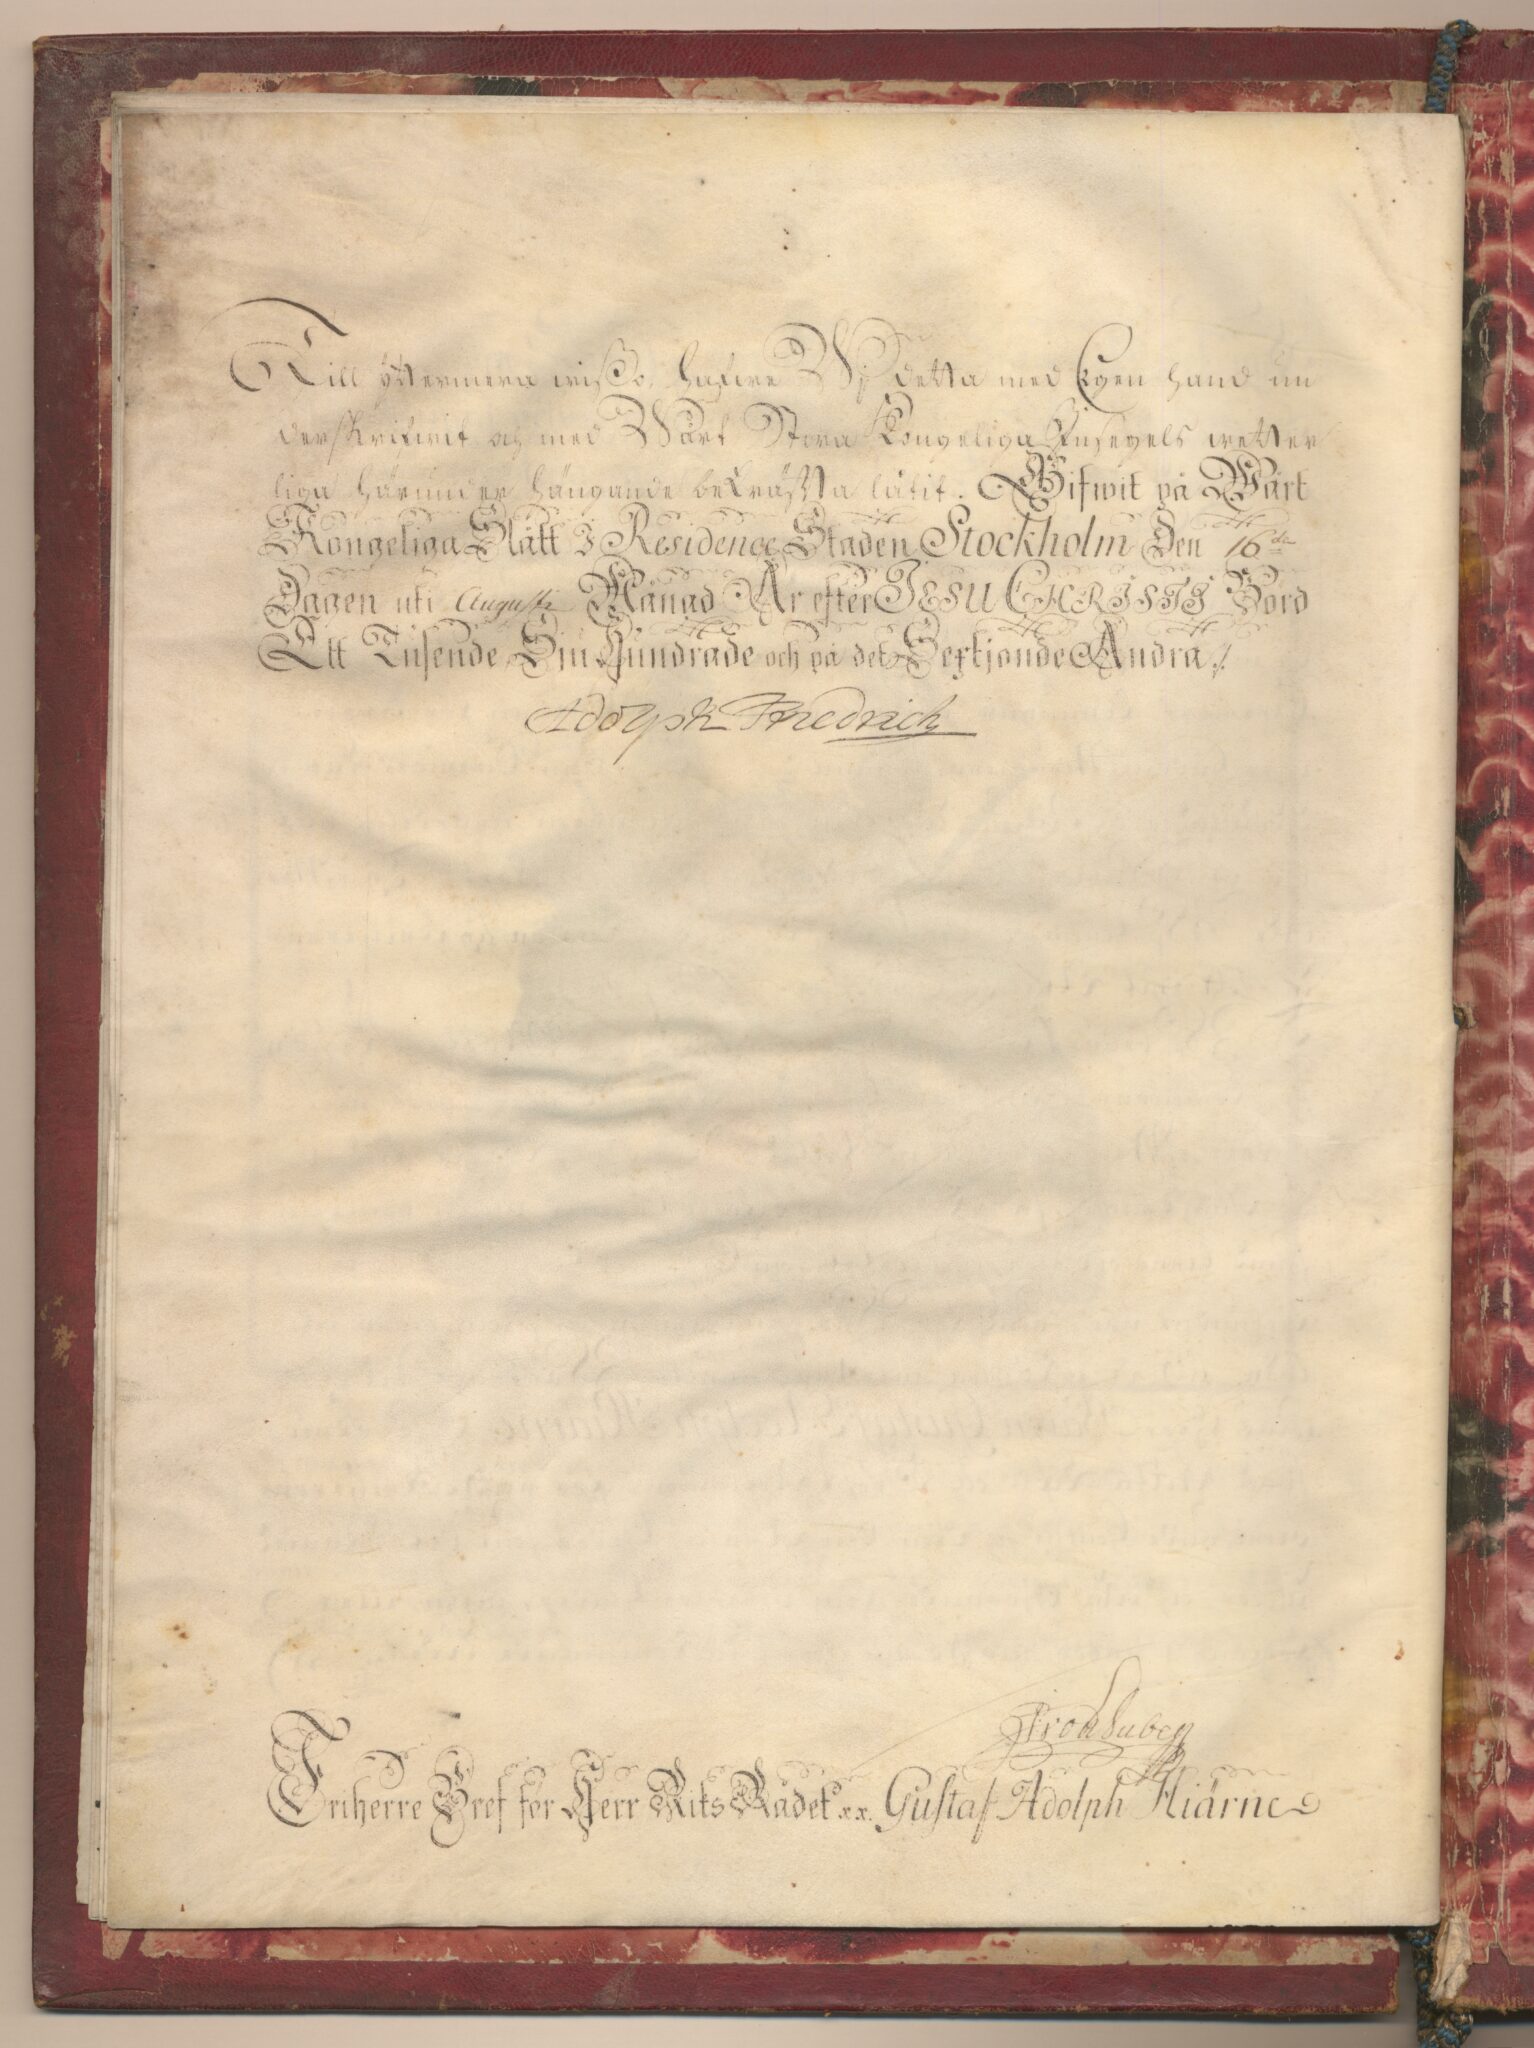 Till yttermera wißo, hafwe Wi detta med Egen hand un
derskrifwit och med Wårt Stora Kongeliga Insegels wetter
liga härunder hängande bekräffta låtit. Gifwit på Wårt
Kongeliga Slått I Residence Staden Stockholm Den 16de
Dagen uti Augusti Månad År efter JESU CHRISTI Börd
Ett Tusende Siu Hundrade och på det Sextjonde Andra./.
Adolph Friedrich
Friherre Bref för Herr Riks Rådet xx. Gustaf Adolph Hiärne